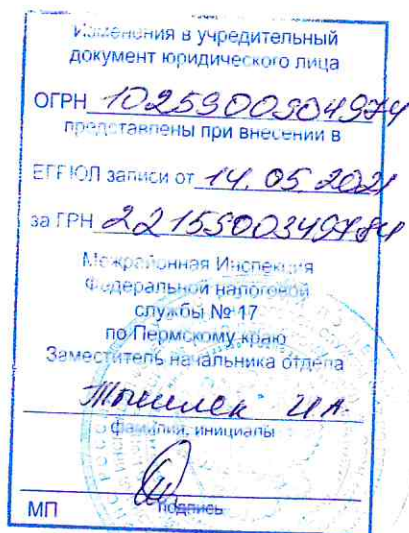 Изменения в учредительный
документ юридического лица
ОГРН 1025900504974
представлены при внесении в
ЕГРЮЛ записи от 14.05.2021
за ГРН 2215500349784
Межрайонная Инспекция
Федеральной налоговой
службы № 17
по Пермскому краю
Заместитель начальника отдела
И.А.
фамилия, инициалы
подпись
МП